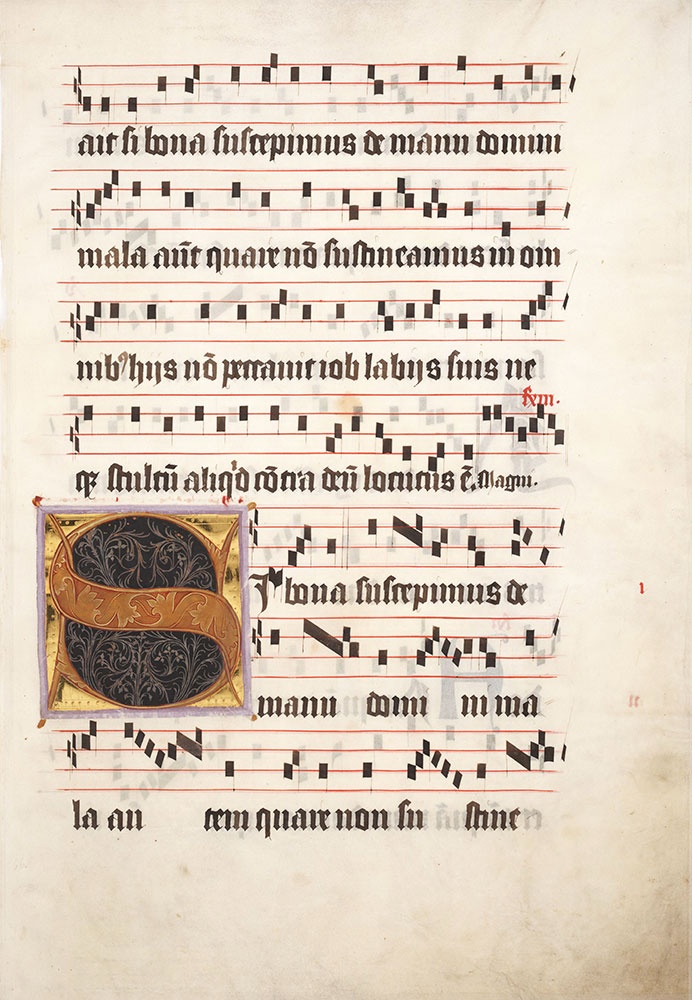 ait si bona suscepimus de manu domini
mala aūt quare nō sustineamus in om
nibꝰ hijs nō peccauit iob labijs suis ne
Fem.
qꝫ stultū aliqͥd cōtra deū locutus ē. Magnī.
SI bona suscepimus de
manu domi ni ma
la au tem quare non su stine